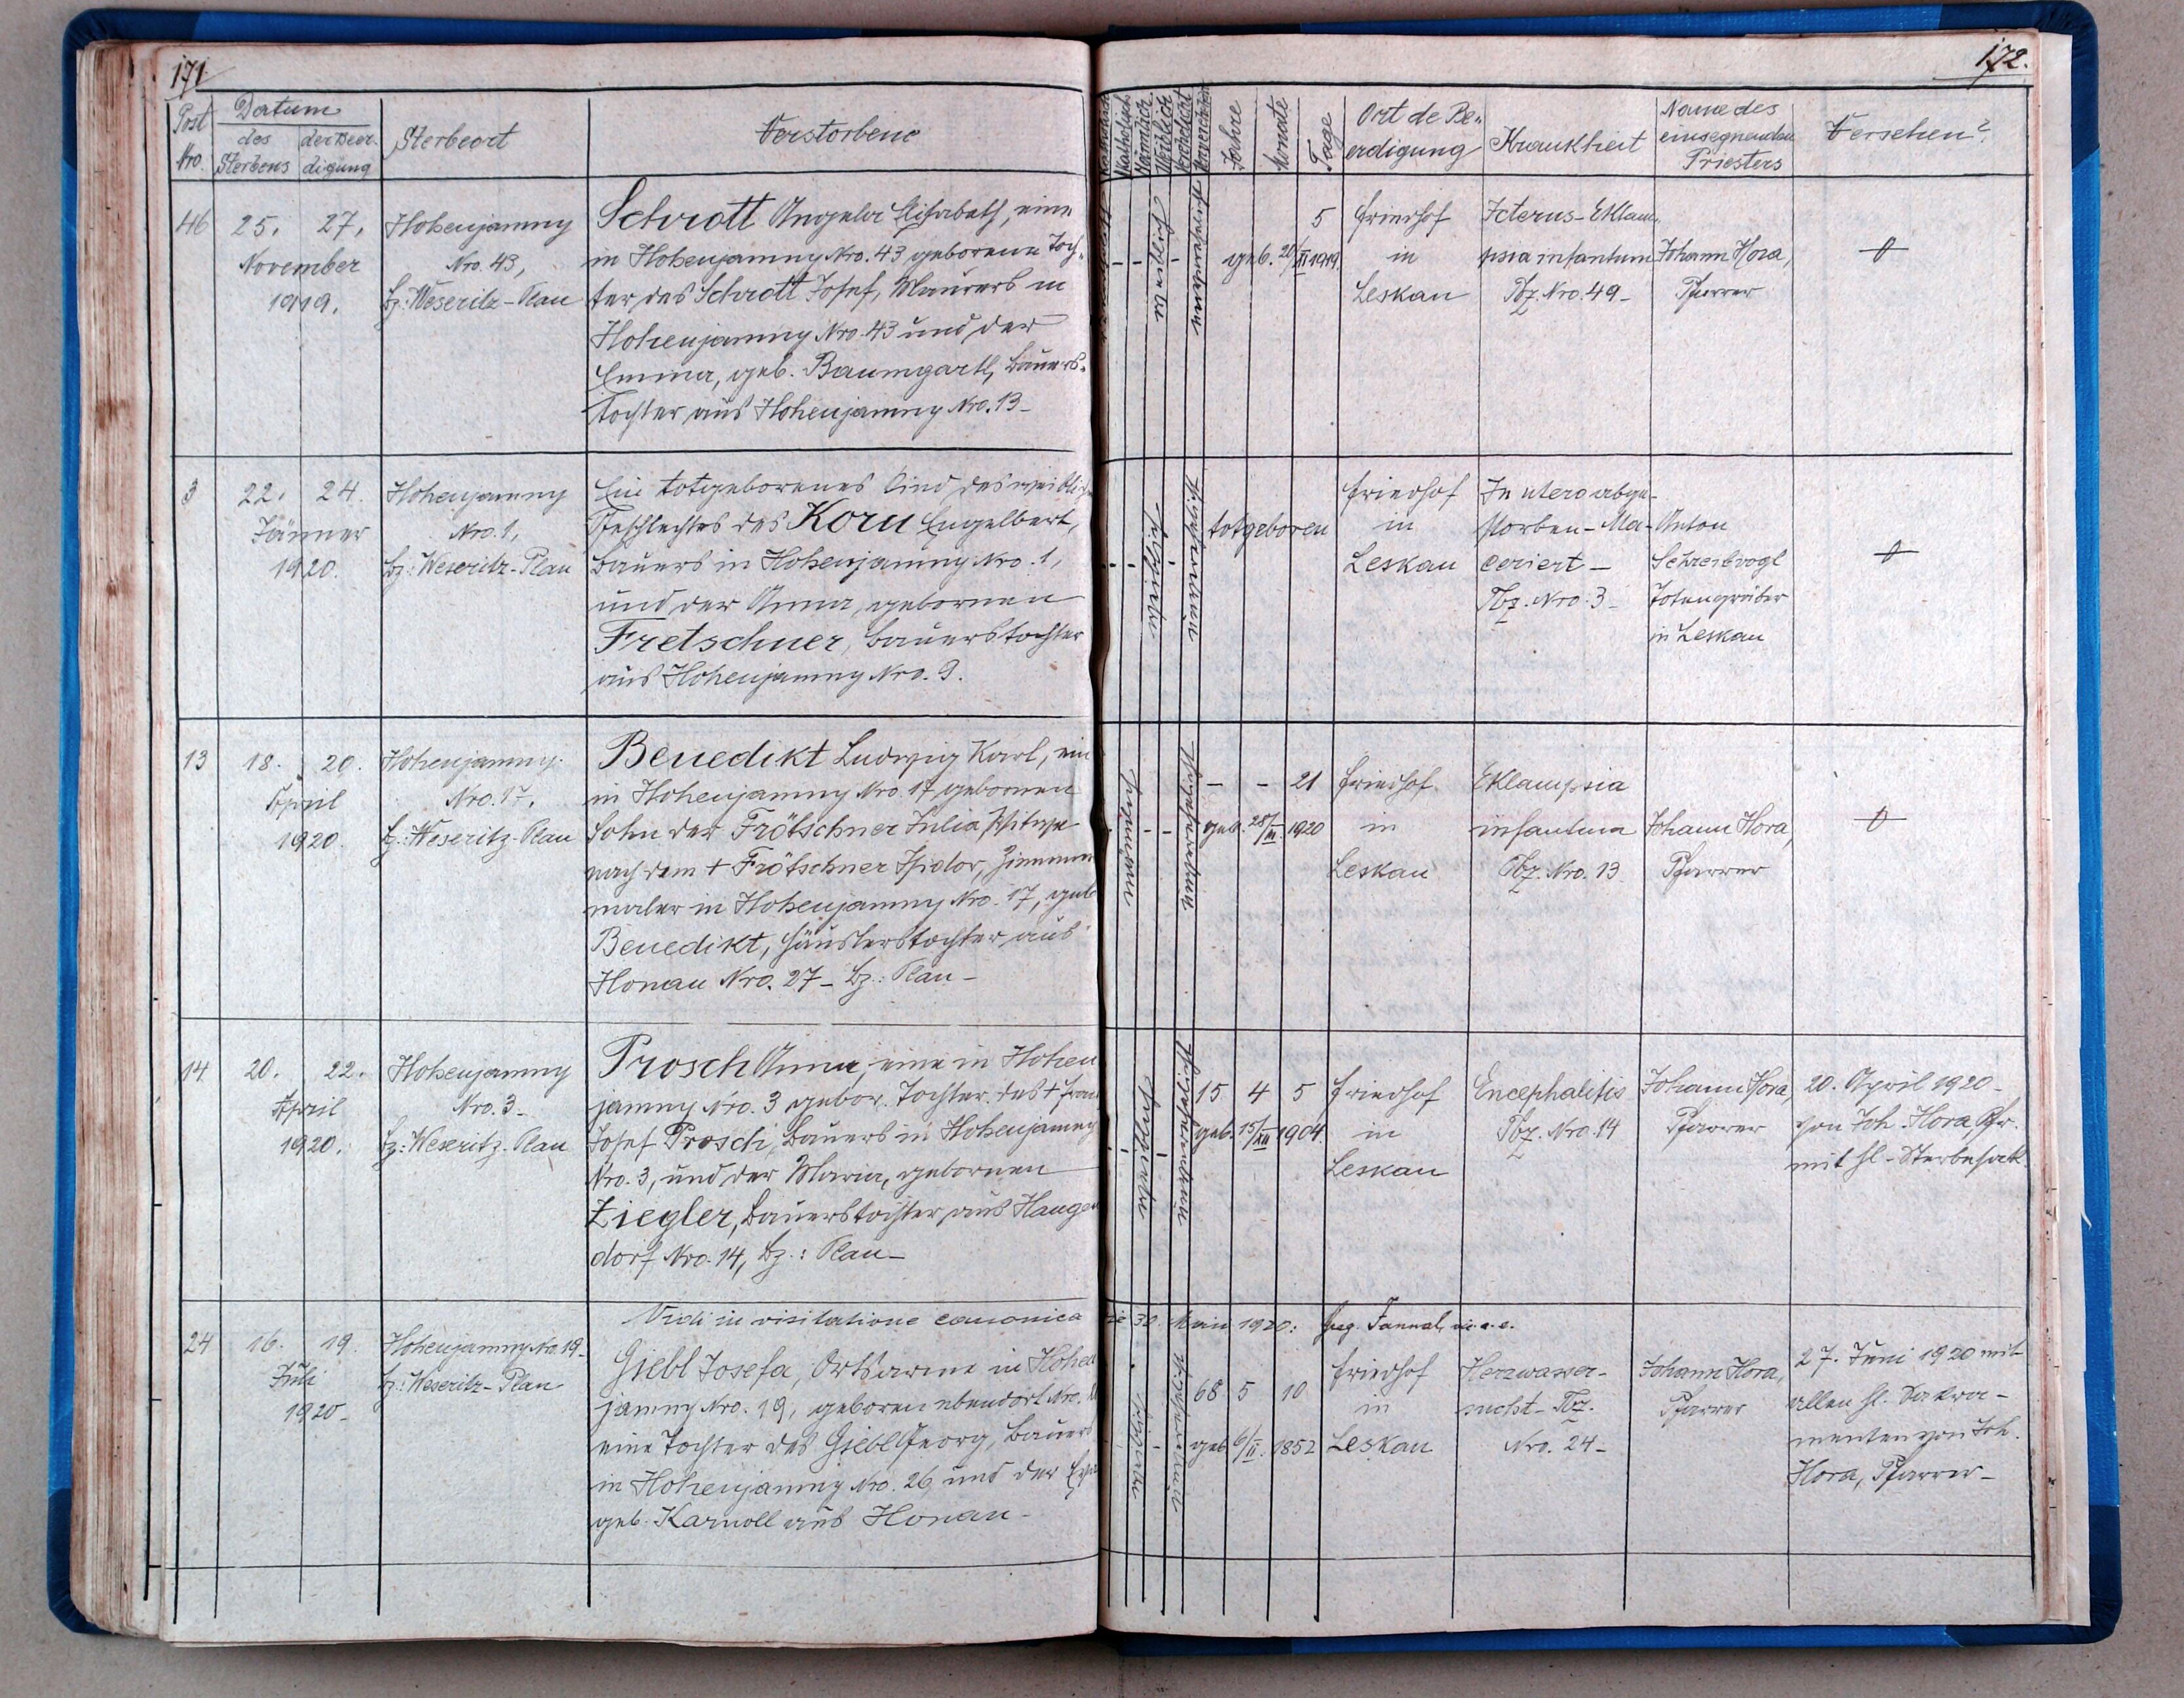 171
172.
Post Nro.
Datum
des Sterbens
der Beer-
digung
Sterbeort
Verstorbene
Katholisch
Akatholisch
Männlich
Weiblich
Jahre
Monate
Tage
Ort de Be-
erdigung
Krankheit
Name des
einsegnenden
Priesters
Versehen?
46
25. 27.
November
1919.
Hohenjamny
Nro. 43,
Bz: Weseritz-Plan
Schrott Angela Elisabeth, eine
in Hohenjamny Nro. 43 geborene Toch-
ter des Schrott Josef, Maurers in
Hohenjamny Nro. 43 und der
Emma, geb. Baumgartl, Bauers-
tochter aus Hohenjamny Nro. 13-
5
geb. 20/XI 1919.
Friedhof
in
Leskau
Icterus-Eklam-
psia infantum
Tbz. Nro. 49-
Johann Hora,
Pfarrer
3
22. 24.
Jänner
1920.
Hohenjamny
Nro. 1,
Bz: Weseritz-Plan
Ein totgeborenes Kind des weiblichen
Geschlechtes des Korn Engelbert,
Bauers in Hohenjamny Nro. 1,
und der Anna, gebornen
Fretschner, Bauerstochter
aus Hohenjamny Nro. 9.
totgeboren
Friedhof
in
Leskau
In utero abge-
storben-Ma-
ceriert-
Tbz. Nro. 3-
Anton
Schreibvogl
Totengräber
in Leskau
13
18. 20.
April
1920.
Hohenjamny
Nro. 17.
Bz: Weseritz-Plan
Benedikt Ludwig Karl, ein
in Hohenjamny Nro. 17 gebornen
Sohn der Frötschner Julia, Witwe
nach dem + Frötschner Isidor, Zimmer
maler in Hohenjamny Nro. 17, geb
Benedikt, Häuslerstochter aus
Honau Nro. 27- Bz.: Plan-
- - 21
geb. 28/III. 1920
Friedhof
in
Leskau
Eklampsia
infantum
Tbz. Nro. 13
Johann Hora,
Pfarrer
14
20. 22.
April
1920.
Hohenjamny
Nro. 3-
Bz: Weseritz-Plan
Prosch Anna, eine in Hohen
jamny Nro. 3 gebor. Tochter des + Franz
Josef Prosch, Bauers in Hohenjamny
Nro. 3, und der Maria, gebornen
Ziegler, Bauerstochter aus Hangen
dorf Nro. 14, Bz.: Plan-
15 4 5
geb. 15/XII 1904
Friedhof
in
Leskau
Encephalitis
Tbz. Nro. 14
Johann Hora,
Pfarrer
20. April 1920-
von Joh. Hora, Pfr.
mit hl. Sterbesak.
Vidi in visitatione canonica
die 30. Maii 1920:
24
16. 19.
Juli
1920-
Hohenjamny Nro. 19-
Bz: Weseritz-Plan
Giebl Josefa, Ortsarme in Hohen
jamny Nro. 19, geboren ebendort Nro.
eine Tochter des Giebl Georg, Bauers
in Hohenjamny Nro. 26 und der
geb. Karnoll aus Honau-
68 5 10
geb 6/II. 1852
Friedhof
in
Leskau
Herzwasser-
sucht-Tbz.
Nro. 24-
Johann Hora,
Pfarrer
27. Juni 1920 mit
allen hl. Sakra-
menten von Joh.
Hora, Pfarrer-